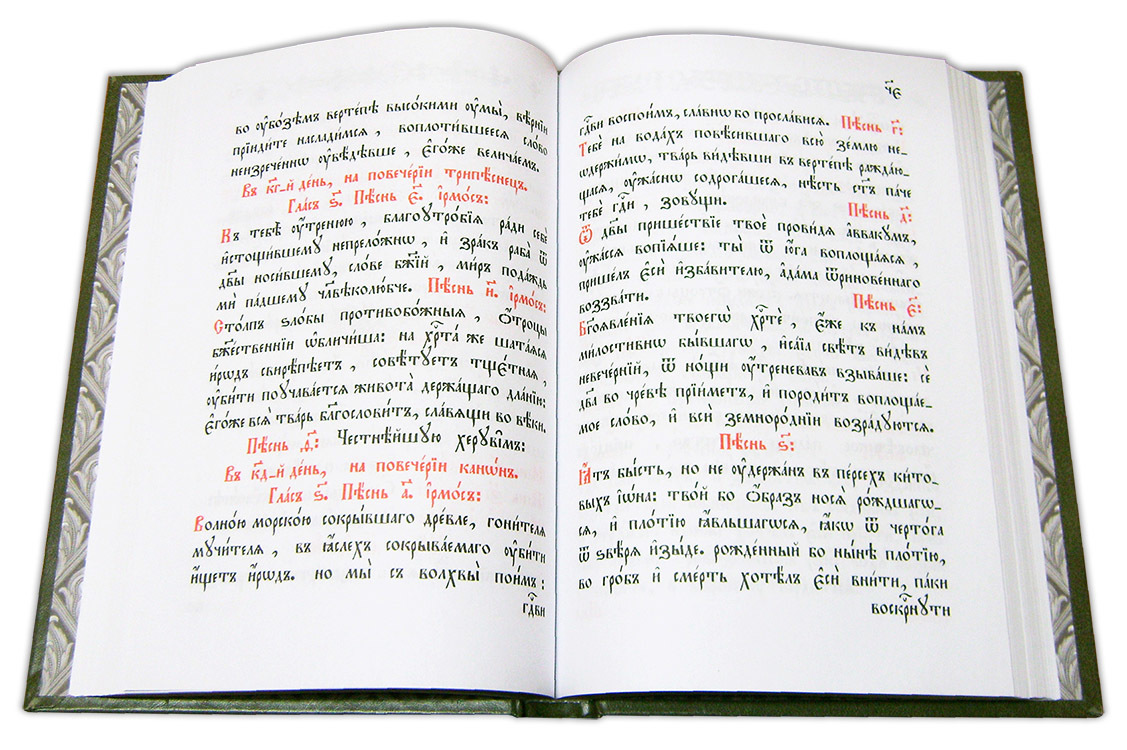 во ᲂу҆бо́зѣмъ верте́пѣ высо́кими ᲂу҆мы̀, вѣ́рнїи
прїиди́те наслади́мсѧ, воплоти́вшеесѧ сло́во
неизрече́ннѡ ᲂу҆вѣ́дѣвше, є҆го́же велича́емъ.
Въ к҃г_й де́нь, на повече́рїи трипѣ́снецъ.
Гла́съ ѕ҃. Пѣ́снь є҃. і҆рмо́съ:
Къ тебѣ̀ ᲂу҆́тренюю, благоꙋтро́бїѧ ра́ди себѐ
и҆стощи́вшемꙋ непрело́жнѡ, и҆ зра́къ раба̀ ѿ
дв҃ы носи́вшемꙋ, сло́ве бж҃їй, ми́ръ пода́ждь
мѝ па́дшемꙋ чл҃вѣколю́бче. Пѣ́снь и҃. і҆рмо́съ:
Сто́лпъ ѕло́бы противобо́жныѧ, ѻ҆́троцы
бж҃е́ственнїи ѡ҆бличи́ша: на хр҇та́ же шата́ѧсѧ
и҆́рѡдъ свирѣпѣ́етъ, совѣ́тꙋетъ тщє́тнаѧ,
ᲂу҆би́ти поꙋча́ваетсѧ живота̀ держа́щаго дла́нїю:
є҆го́же всѧ̀ тва́рь бл҃гослови́тъ, сла́вѧщи во вѣ́ки.
Пѣ́снь ѳ҃: Честнѣ́йшꙋю херꙋві̑мъ:
Въ к҃д_й де́нь, на повече́рїи канѡ́нъ.
Гла́съ ѕ҃. Пѣ́снь а҃. і҆рмо́съ:
Волно́ю морско́ю сокры́вшаго дре́вле, гони́телѧ
мꙋчи́телѧ, въ ꙗ҆́слехъ сокрыва́емаго ᲂу҆би́ти
и҆́щетъ и҆́рѡдъ. но мы̀ съ волхвы̀ пои́мъ:
гдⷭ҇ви
ч҃є
гдⷭ҇ви воспои́мъ, сла́внѡ бо просла́висѧ. Пѣ́снь г҃:
Тебѐ на вода́хъ повѣ́сившаго всю̀ зе́млю не_
ѡдержи́мѡ, тва́рь ви́дѣвши въ верте́пѣ ражда́ю_
щасѧ, ᲂу҆жа́снѡ содрога́шесѧ, нѣ́сть ст҃ъ па́че
тебє̀ гдⷭ҇и, зовꙋ́щи. Пѣ́снь д҃:
Ѿ дв҃ы прише́ствїе твоѐ прови́дѧ а҆ввакꙋ́мъ,
ᲂу҆жа́сѧ вопїѧ́ше: ты̀ ѿ ю҆́га воплоща́ѧсѧ,
прише́лъ є҆сѝ и҆зба́вителю, а҆да́ма ѿринове́ннаго
воззва́ти. Пѣ́снь є҃:
Бг҃оѧвле́нїѧ твоегѡ̀ хрⷭ҇тѐ, є҆́же къ на́мъ
ми́лостивнѡ бы́вшагѡ, и҆са́їа свѣ́тъ ви́дѣвъ
невече́рнїй, ѿ но́щи ᲂу҆́треневавъ взыва́ше: сѐ
дв҃а во чре́вѣ прїи́метъ, и҆ породи́тъ воплоща́е_
мое сло́во, и҆ всѝ земноро́днїи возра́дꙋютсѧ.
Пѣ́снь ѕ҃:
Ꙗ҆́тъ бы́сть, но не ᲂу҆держа́нъ въ пе́рсехъ ки́то_
выхъ і҆ѡ́на: тво́й бо ѻ҆́бразъ носѧ̀ ро́ждшагѡ_
сѧ, и҆ пло́тїю ꙗ҆́вльшагѡсѧ, ꙗ҆́кѡ ѿ черто́га
ѿ ѕвѣ́рѧ и҆зы́де. рожде́нный бо ны́нѣ пло́тїю,
во гро́бъ и҆ сме́рть хотѣ́лъ є҆сѝ вни́ти, па́ки
воскрⷭ҇нꙋти